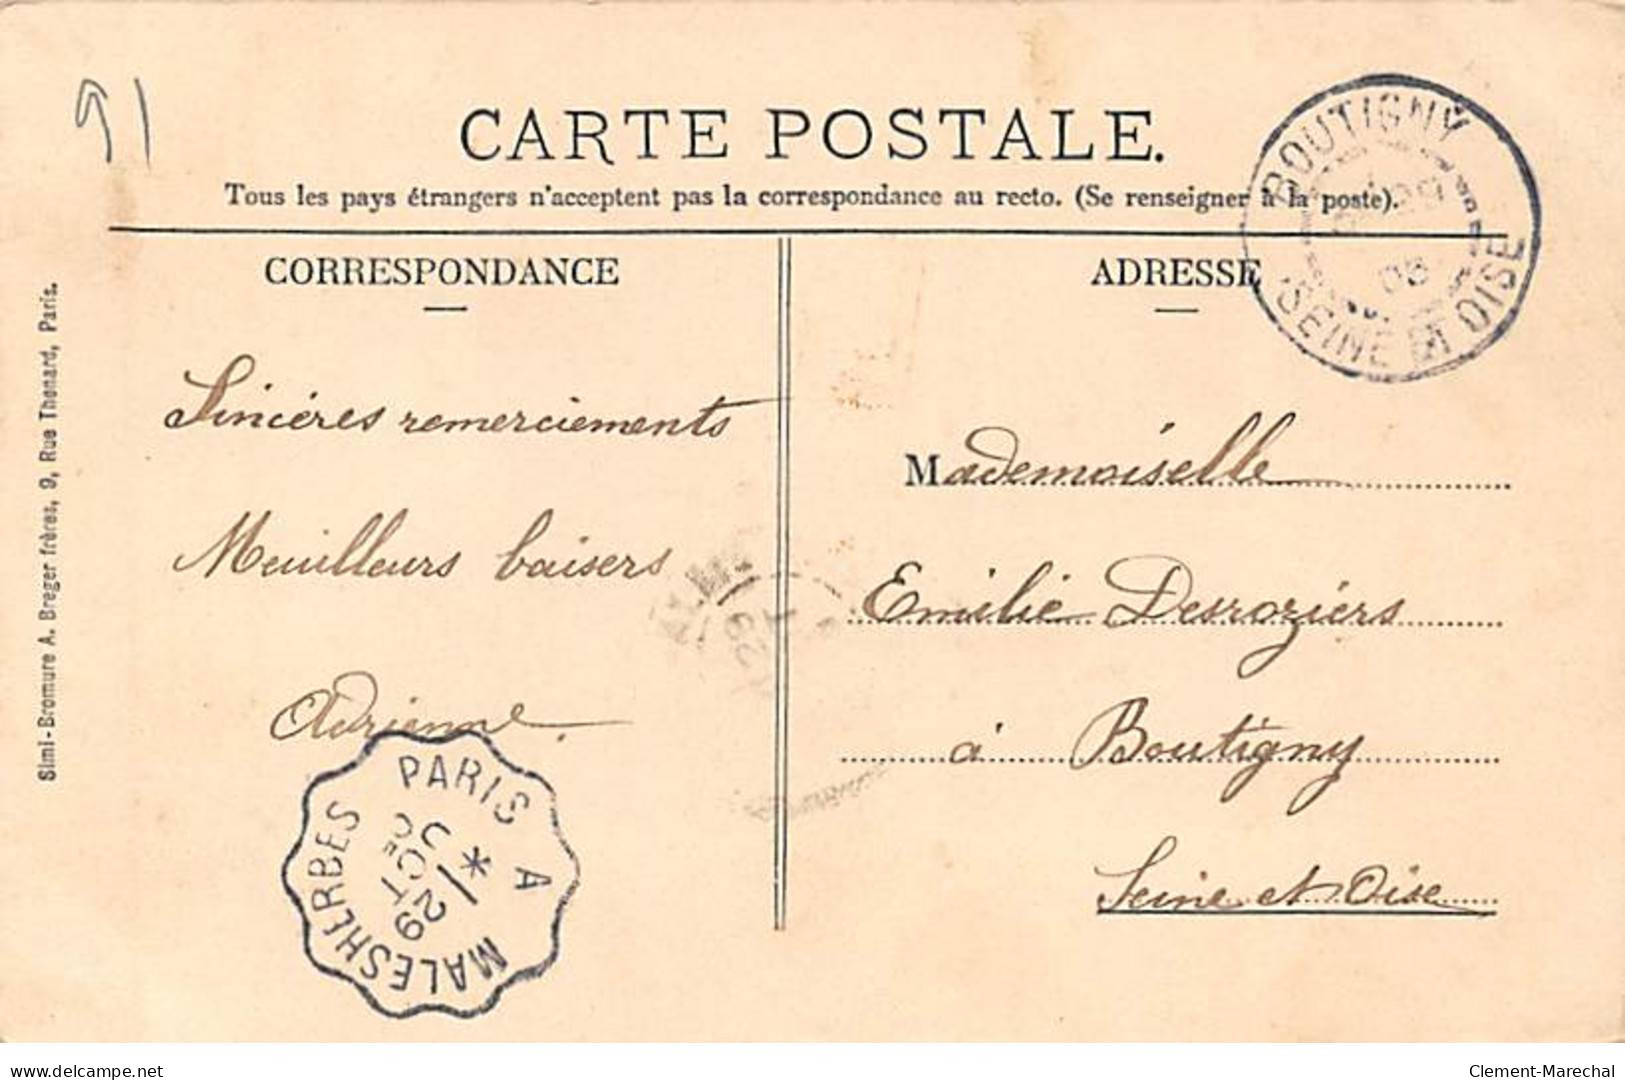 91
CARTE POSTALE.
Tous les pays étrangers n'acceptent pas la correspondance au recto. (Se renseigner à la poste).
CORRESPONDANCE
ADRESSE
BOUTIGNY
29
05
SEINE ET OISE
Sincères remerciements
Meuilleurs baisers
Adrienne.
Mademoiselle
Emilie Desroziers
à Boutigny
Seine et Oise
PARIS A MALESHERBES
29 OCT
Simi-Bromure A. Breger frères, 9, Rue Thenard, Paris.
delcampe.net
Clement-Marechal